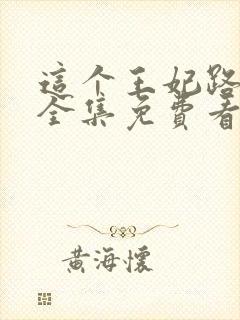 這个王妃路
全集免費看
黃海懷